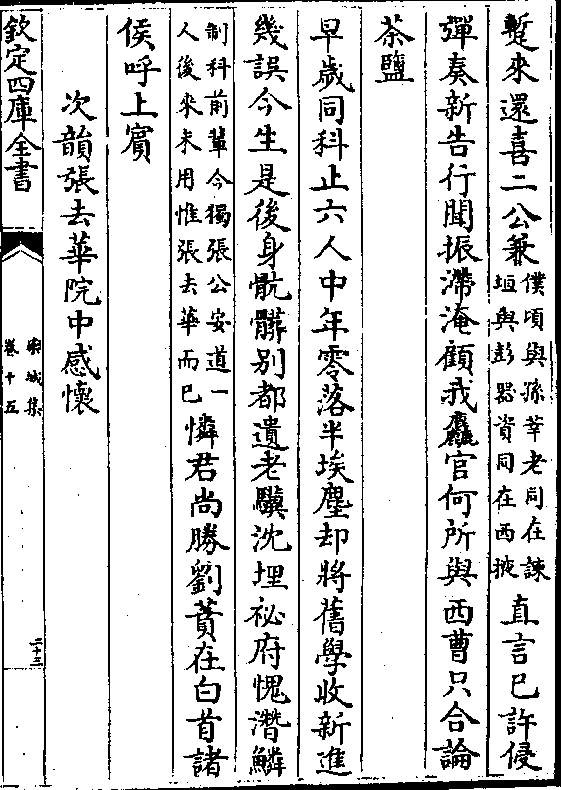 蹔來還喜二公兼僕頃與孫莘老同在諫
垣與彭器資同在西掖直言已許侵
彈奏新告行聞振滯淹顧我麤官何所與西曹只合論
茶鹽
早歲同科止六人中年零落半埃塵却將舊學收新進
幾誤今生是後身骯髒別都遺老驥沈埋祕府愧潛鱗
制科前輩今獨張公安道一
人後來未用惟張去華而已憐君尚勝劉蕡在白首諸
侯呼上賓
次韻張去華院中感懷
欽定四庫全書
欒城集
卷十五
二十三